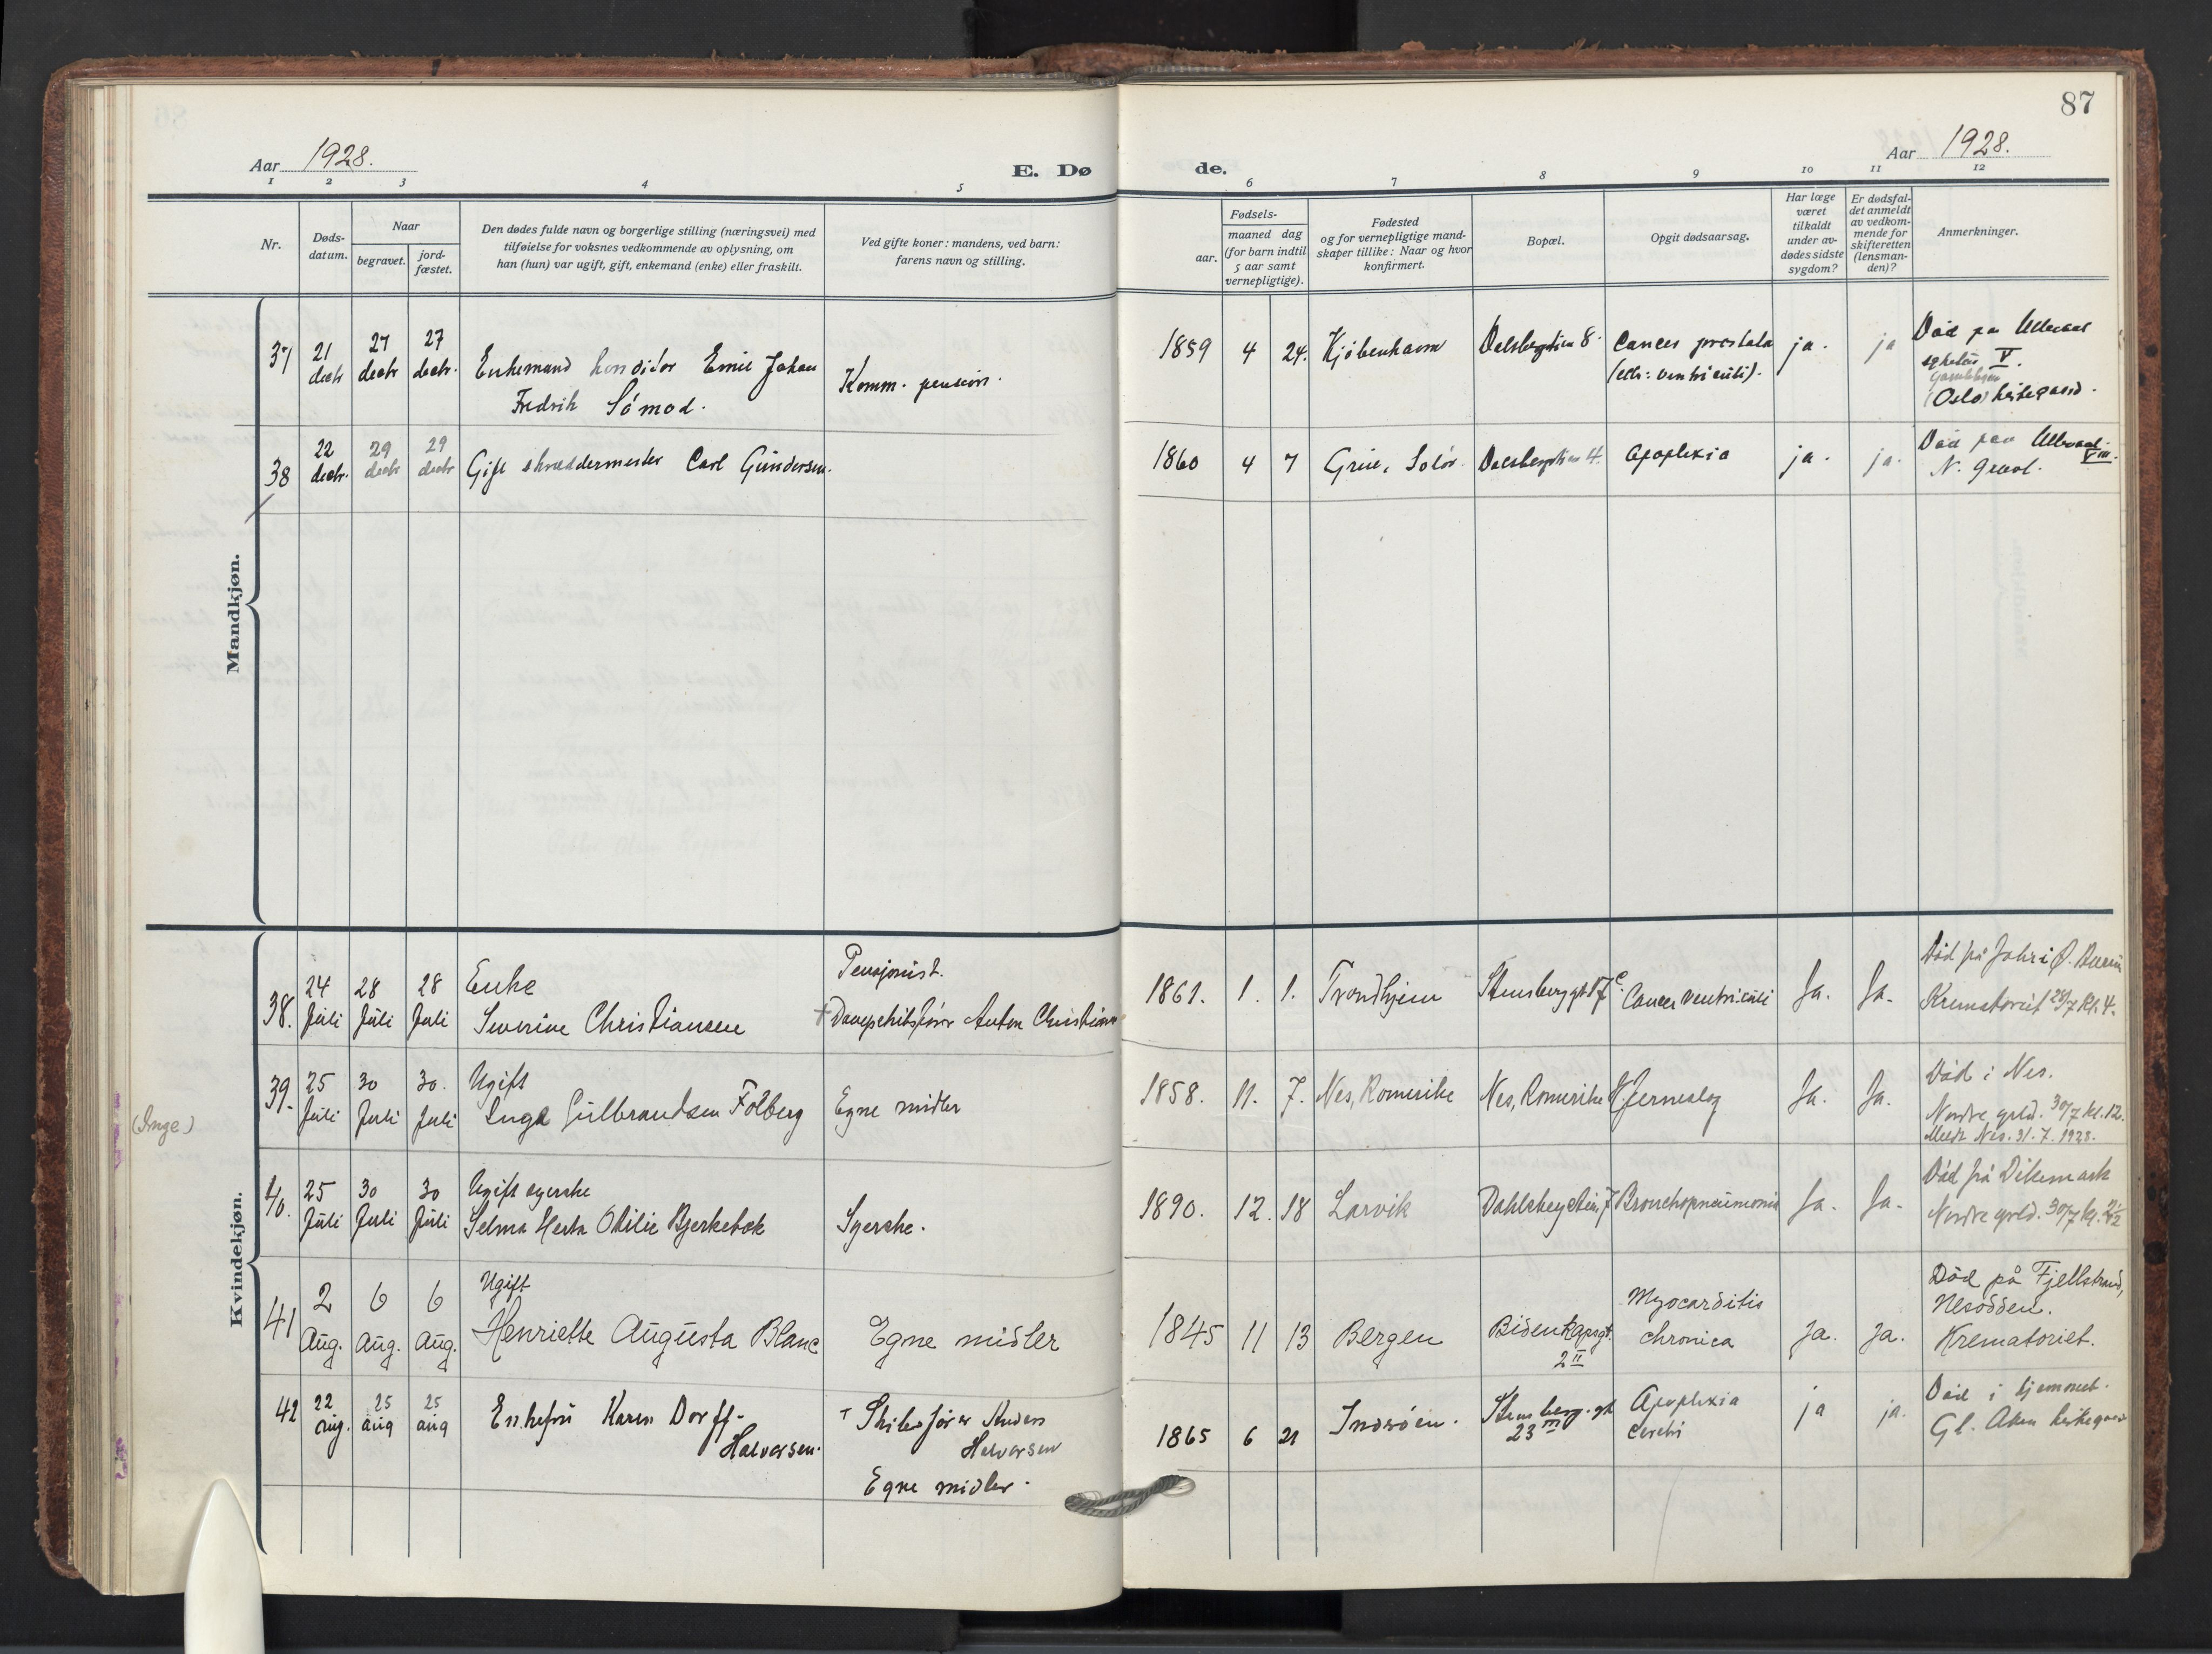 87
Aar 1928.
E. Dø de.
Aar 1928.
1 2 3 4 5 6 7 8 9 10 11 12
Nr.
Døds-
datum.
Naar
begravet.
jord-
fæstet.
Den dødes fulde navn og borgerlige stilling (næringsvei) med
tilføielse for voksnes vedkommende av oplysning, om
han (hun) var ugift, gift, enkemand (enke) eller fraskilt.
Ved gifte koner: mandens, ved barn:
farens navn og stilling.
Fødsels-
aar.
maaned dag
(for barn indtil
5 aar samt
vernepligtige).
Fødested
og for vernepligtige mand-
skaper tillike: Naar og hvor
konfirmert.
Bopæl.
Opgit dødsaarsag.
Har læge
været
tilkaldt
under av-
dødes sidste
sygdom?
Er dødsfal-
det anmeldt
av vedkom-
mende for
skifteretten
(lensman-
den)?
Anmerkninger.
Mandkjøn.
37 21 decbr 27 decbr 27 decbr.
Enkemand konditor Emil Johan
Fredrik Sömod.
Komm. pension.
1859 4 24. Kjöbenhavn
8.
Cancer prostata
ja. ja
Död paa Ullevaal
V.
(Oslo)
38 22 decbr. 29 decbr 29 decbr
Gift skræddermester Carl Gundersen.
1860 4 7 Grue, Solör. 4. Apoplexia ja. ja.
Död paa Ullevaal VIII.
N. Gravl.
Kvindekjøn.
38. 24 Juli 28 Juli 28 Juli
Enke
Severine Christiansen
Pensjonist.
+ Anton Christiansen
1861. 1. 1. Trondhjem Stensberggt 17 c. Cancer ventriculi Ja. Ja.
Krematoriet 28/7 Kl. 4.
(Inge)
39. 25 Juli 30 Juli 30. Juli
Ugift
Inga Gulbrandsen Folberg
Egne midler
1858. 11. 7. Nes, Romerike Nes, Romerike Hjerneslag Ja. Ja.
Död i Nes.
Nordre gvld. 30/7 kl. 12.
Meldt Nes. 31. 7. 1928.
40. 25 Juli 30 Juli 30 Juli
Ugift syerske
Selma Otilie Bjerkebæk
Syerske.
1890. 12. 18 Larvik Dahlsbergstien 7 Bronchopneumonia Ja. Ja.
Död på Dikemark
Nordre gvld. 30/7 kl. 2½
41 2 Aug. 6 Aug. 6 Aug.
Ugift
Henriette Augusta Blanc
Egne midler
1845 11 13 Bergen
2 II
Myocarditis
chronica
Ja. Ja.
Död på Fjellstrand,
Nesodden.
Krematoriet.
42 22 aug. 25 aug 25 aug
Enkefru Karen Dorff-
Halvorsen.
+ Skibsfører Anders
Halvorsen
Egne midler.
1865 6 21 Inderöen. Stensberg. gt
23 III
Apoplexia
cerebri
ja ja.
Död i hjemmet.
Gl. Aker kirkegaard